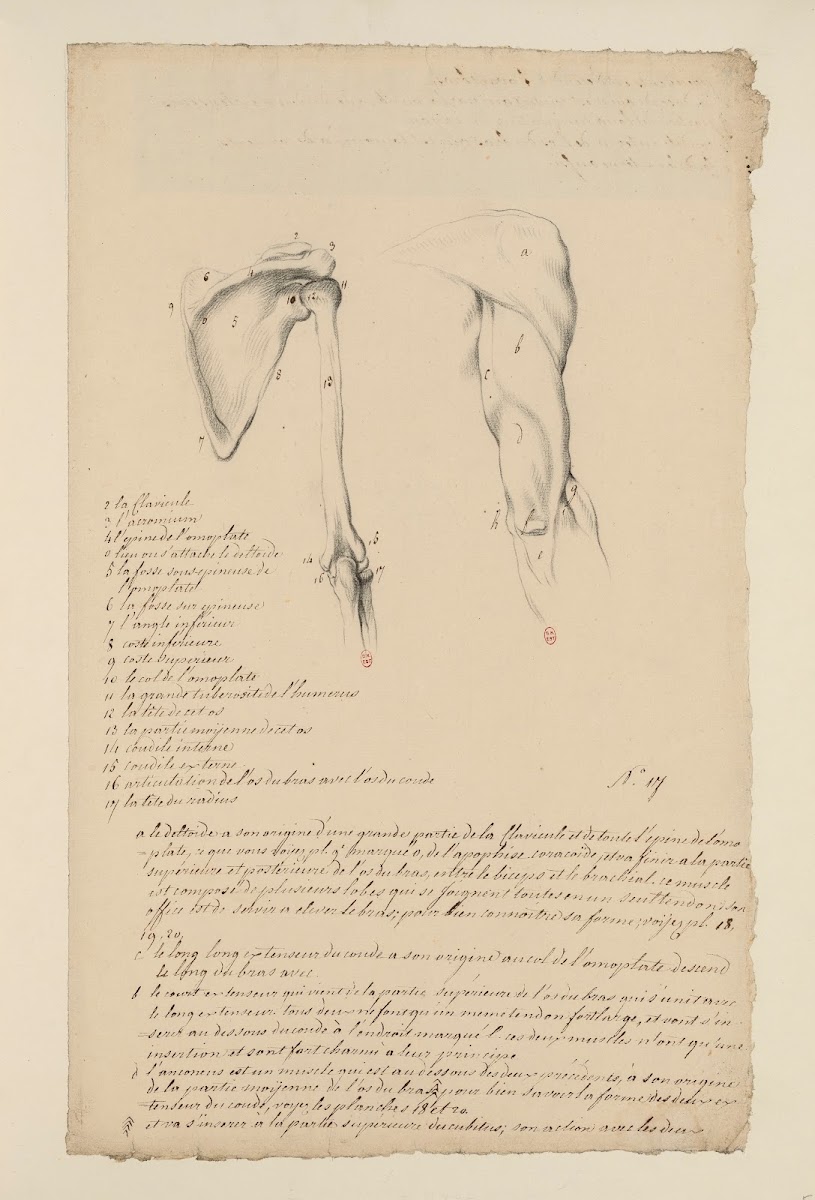 2 la flavicule
3 l'acromium
4 l'epine de l'omoplate
0 lieu ou s'attache le deltoide
5 la fosse sous epineuse de
l'omoplate
6 la fosse sur epineuse
7 l'angle inferieur
8 coste inferieure
9 coste superieur
10 le col de l'omoplate
11 la grande tuberosité de l'humerus
12 la tête de cet os
13 la partie moÿenne de cet os
14 condile interne
15 condile externe
16 articulation de l'os du bras avec l'os du coude
17 la tête du radius
N.º 17
a le deltoide a son origine d'une grande partie de la flavicule et de toute l'épine de l'omo
-plate, ce que vous voiez pl. 9e marqué 0, de l'apophise coracoïde, et va finir a la partie
supérieure et postérieure de l'os du bras, entre le biceps et le brachial. ce muscle
est composé de plusieurs lobes qui se joignent toutes en un seul tendon: son
office est de servir a elever le bras; pour bien connoitre sa forme; voÿez pl. 18.
19. 20.
c le long long extenseur du coude a son origine au col de l'omoplate descend
le long du bras avec
b le court extenseur qui vient de la partie supérieure de l'os du bras qui s'unit avec
le long extenseur. tous deux ne font qu'un meme tendon fort large, et vont s'in-
serer au dessous du coude à l'endroit marqué l. ces deux muscles n'ont qu'une
insertion et sont fort charnu a leur principe
d l'anconeus est un muscle qui est au dessous des deux précédens, à son origine
de la partie moÿenne de l'os du bras, pour bien savoir la forme des deux ex-
tenseur du coude, voyez les planches 18 et 20.
et va s'inserer à la partie superieure du cubitus; son action avec les deux